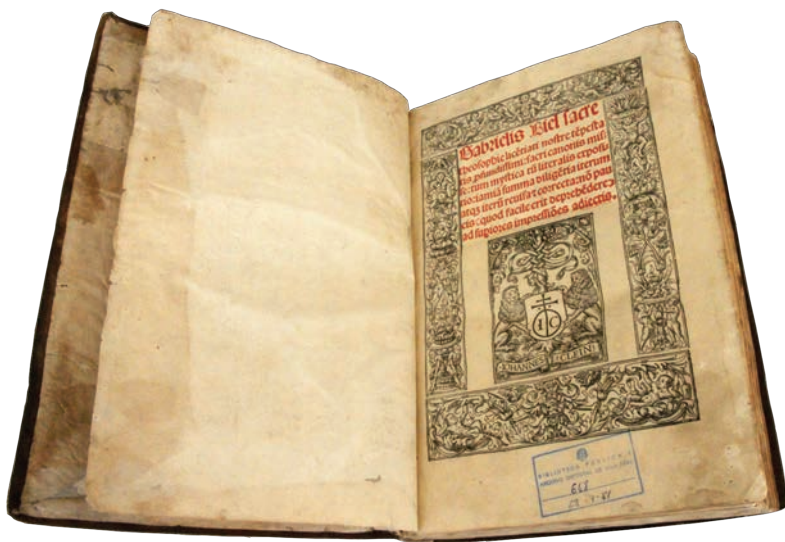 Gabrielis Biel sacre
theosophie licētiati nostre tēpesta
tis ꝓfundissimi: sacri canonis mis
se: tum mystica tū literalis exposi
tio: iamiā summa diligētia iterum
atqꝫ iterū reuisa ⁊ correcta: nō pau
cis: quod facile erit deprehēdere:
ad supiores impressiōes adiectis.
I C
IOHANNES CLEIN
BIBLIOTECA PÚBLICA E
ARQUIVO DISTRITAL DE VILA REAL